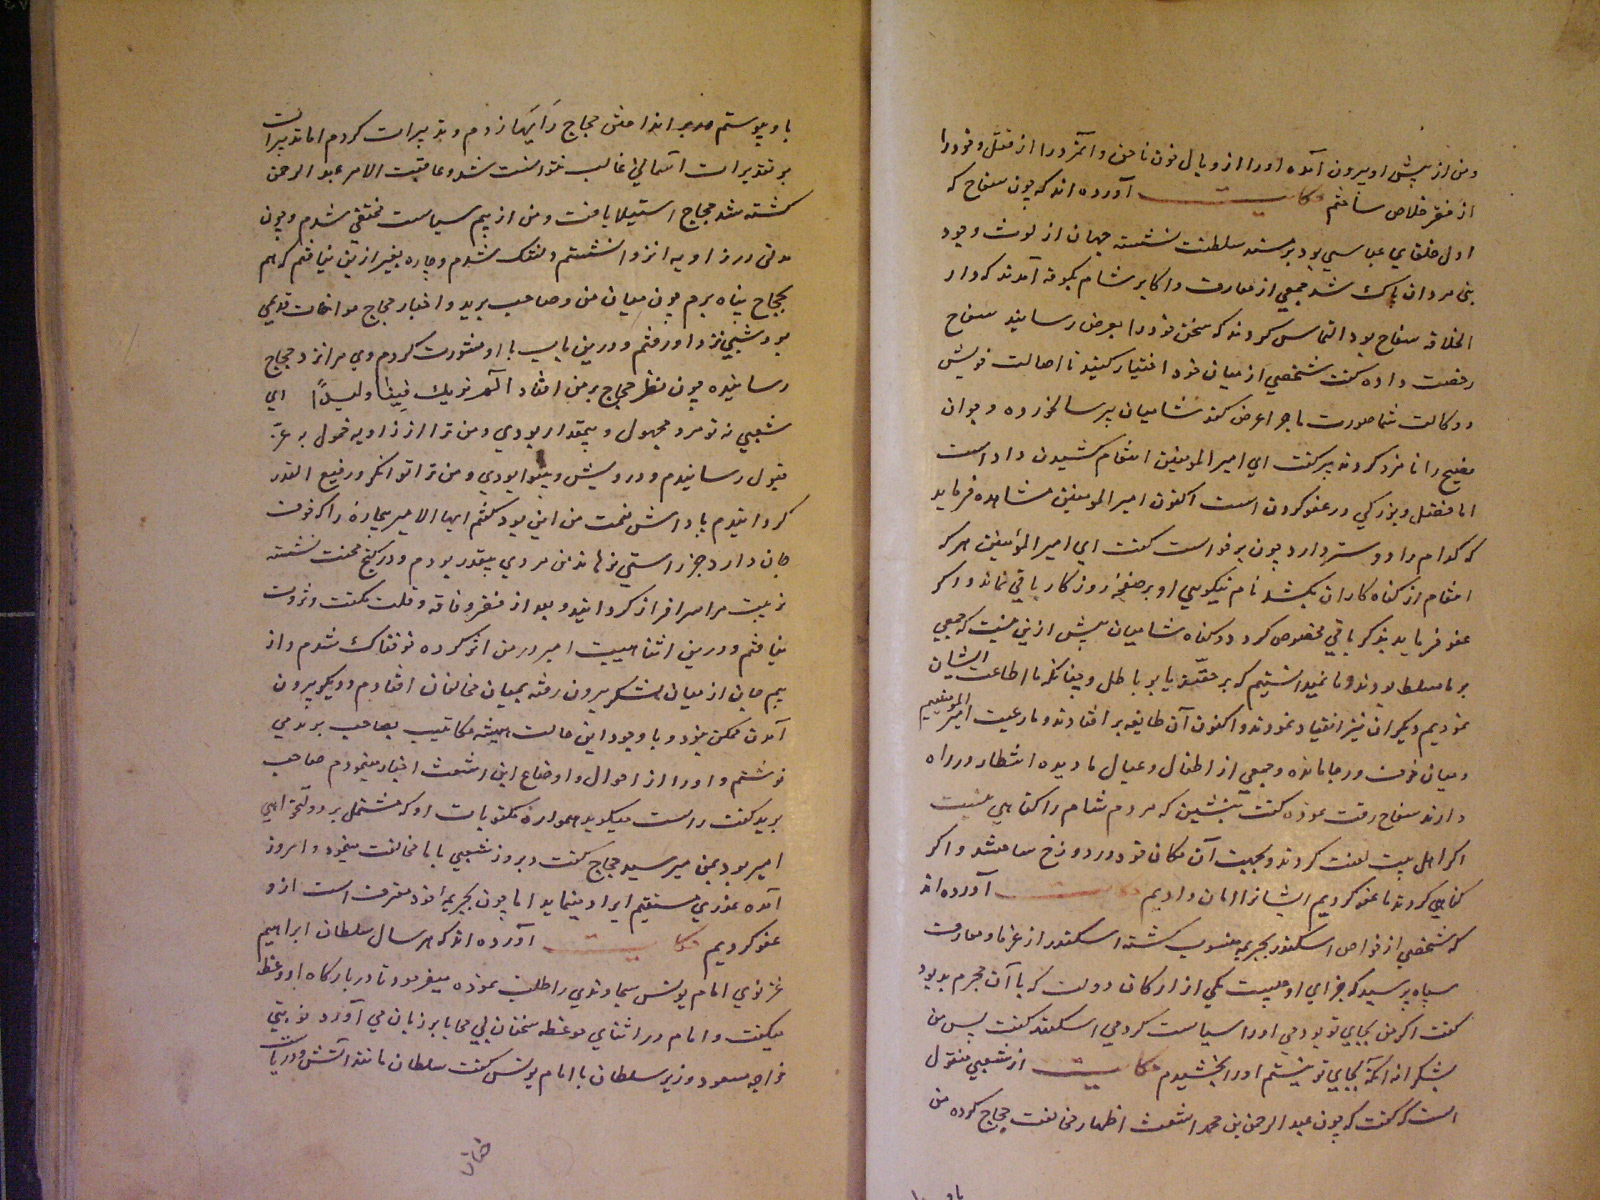 ومن از پیش او بیرون آمده او را از وبال خون ناحق و آنمرد را از قتل و خود را
از فقر خلاص ساختم حکایت آورده اند که چون سفاح که
اول خلفای عباسی بود بر مسند سلطنت نشسته جهان از لوث وجود
بنی مروان پاک شد جمعی از معارف و اکابر شام بکوفه آمدند که دار
الخلافه سفاح بود التماس کردند که سخن خود را بعرض رسانند سفاح
رخصت داده گفت شخصی از میان خود اختیار کنید تا اصالت خویش
و وکالت شما صورت ماجرا عرض کند شامیان پیر سالخورده و جوان
فصیح را نامزد کردند پیر گفت ای امیر المومنین انتقام کشیدن داد است
اما فضل و بزرگی در عفو کردن است اکنون امیر المومنین مشاهده فرماید
که کدام را دوستر دارد چون برخواست گفت ای امیر المؤمنین هر که
انتقام از گناه کاران بکشد نام نیکویی او بر صفحه روزگار باقی نماند و اگر
عفو فرماید بذکر باقی مخصوص گردد و گناه شامیان بیش ازین نیست که جمعی
بر ما مسلط بودند و ما نمیدانستیم که بر حقند یا بر باطل و چنانکه ما اطاعت ایشان
نمودیم دیگران نیز انقیاد نمودند و اکنون آن طایفه بر افتادند و ما رعیت امیر المومنینیم
و میان خوف و رجا مانده و جمعی از اطفال و عیال ما دیده انتظار در راه
دارند سفاح رقت نموده گفت بنشین که مردم شام را گناهی نیست
اگر اهل بیت لعنت کردند و بجهت آن مکان خود در دوزخ ساختند و اگر
گناهی کردند ما عفو کردیم ایشانرا امان دادیم حکایت آورده اند
که شخصی از خواص اسکندر بجریمه منسوب گشته اسکندر از عزما و معارف
سپاه پرسید که جزای او چیست یکی از ارکان دولت که با آن مجرم بد بود
گفت اگر من بجای تو بودمی او را سیاست کردمی اسکندر گفت پس من
بشکرانه آنکه بجای تو نیستم او را بخشیدم حکایت از شعبی منقول
است که گفت که چون عبد الرحمن بن محمد اشعث اظهار مخالفت حجاج کرده من
با و
با و پیوستم و در انداختن حجاج رأیها زدم و تدبیرات کردم اما تدبیرات
بر تقدیرات آسمانی غالب نتوانست شد و عاقبت الامر عبد الرحمن
کشته شد حجاج استیلا یافت و من از بیم سیاست مختفی شدم و چون
مدتی در زاویه انزوا نشستم دلتنگ شدم و چاره بغیر ازین نیافتم که هم
بحجاج پناه برم چون میان من و صاحب برید و اخبار حجاج موافقات قدیمی
بود شبی نزد او رفتم و درین باب با او مشورت کردم وی مرا نزد حجاج
رسانیده چون نظر حجاج بر من افتاد الم نربک فینا ولیداً ای
شعبی نه تو مرد مجهول و بیمقدار بودی و من ترا از زاویه خمول به عز
قبول رسانیدم و درویش و بینوا بودی و من ترا توانگر و رفیع القدر
گردانیدم پاداش نعمت من این بود گفتم ایها الامیر بیچاره را که خوف
جان دارد جز راستی نرهاند من مردی بیقدر بودم و در کنج محنت نشسته
تربیت مرا سرافراز گردانید و بعد از فقر و فاقه و قلت مکنت و ثروت
یافتم و درین اثنا هیبت امیر در من اثر کرده خوفناک شدم و از
بیم جان از میان لشکر بیرون رفته بمیان مخالفان افتادم و دیگر بیرون
آمدن ممکن نبود و با وجود این حالت همیشه مکاتیب بصاحب برید می
نوشتم و او را از احوال و اوضاع ابن اشعث اخبار مینمودم صاحب
برید گفت راست میگوید همواره مکتوبات او که مشتمل بر دولتخواهی
امیر بود بمن میرسید حجاج گفت دیروز شعبی با ما مخالفت مینمود و امروز
آمده عذری مستقیم ایراد مینماید اما چون بجریمه خود معترفست از و
عفو کردیم حکایت آورده اند که هر سال سلطان ابراهیم
غزنوی امام یونس سجاوندی را طلب نموده میفرمود تا در بارگاه او وعظ
میگفت و امام در اثنای موعظه سخنان بی محابا بر زبان می آورد نوبتی
خواجه مسعود وزیر سلطان با امام یونس گفت سلطان مانند آتش و دریاست